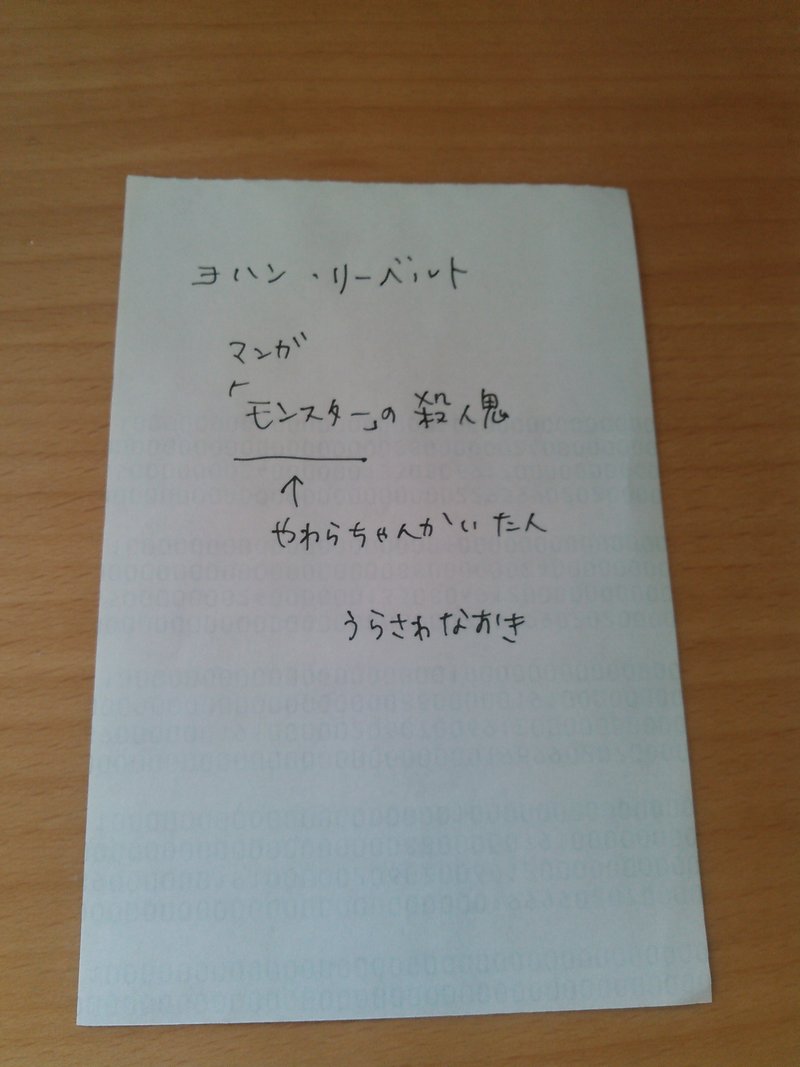 ヨハン・リーベルト
マンガ
「モンスター」の殺人鬼
↑
やわらちゃんかいた人
うらさわなおき